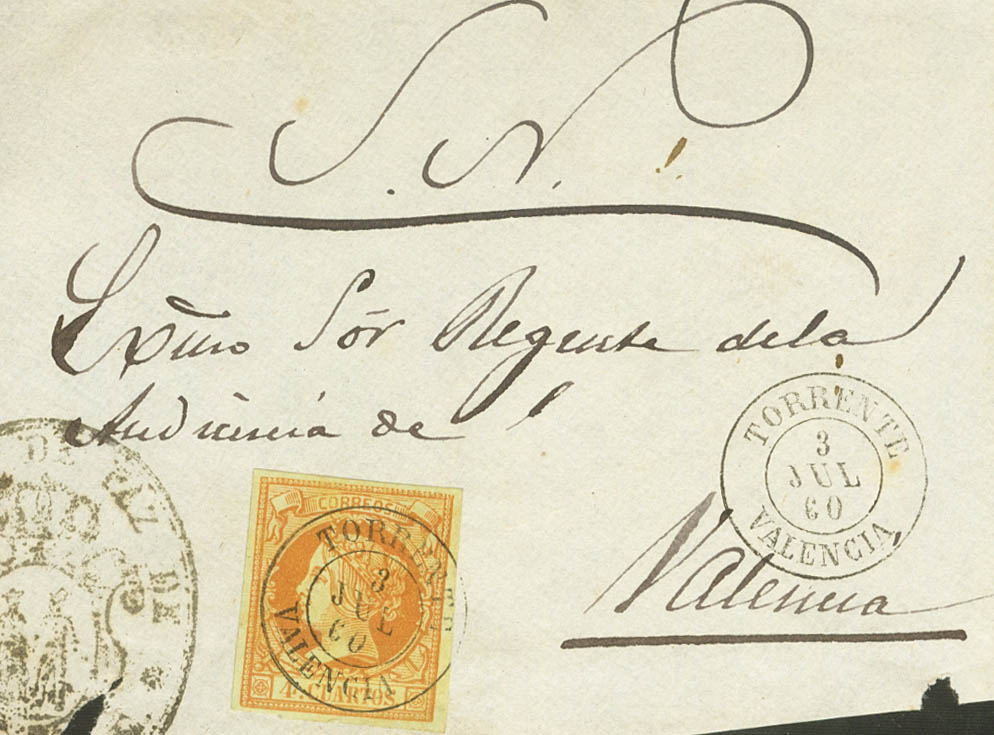 S. N.
Exmo Sōr Regente de la
Audiencia de
Valencia
TORRENTE
3
JUL
60
VALENCIA
CORREOS
TORRENTE
3
JUL
60
VALENCIA
4 CUARTOS
DE